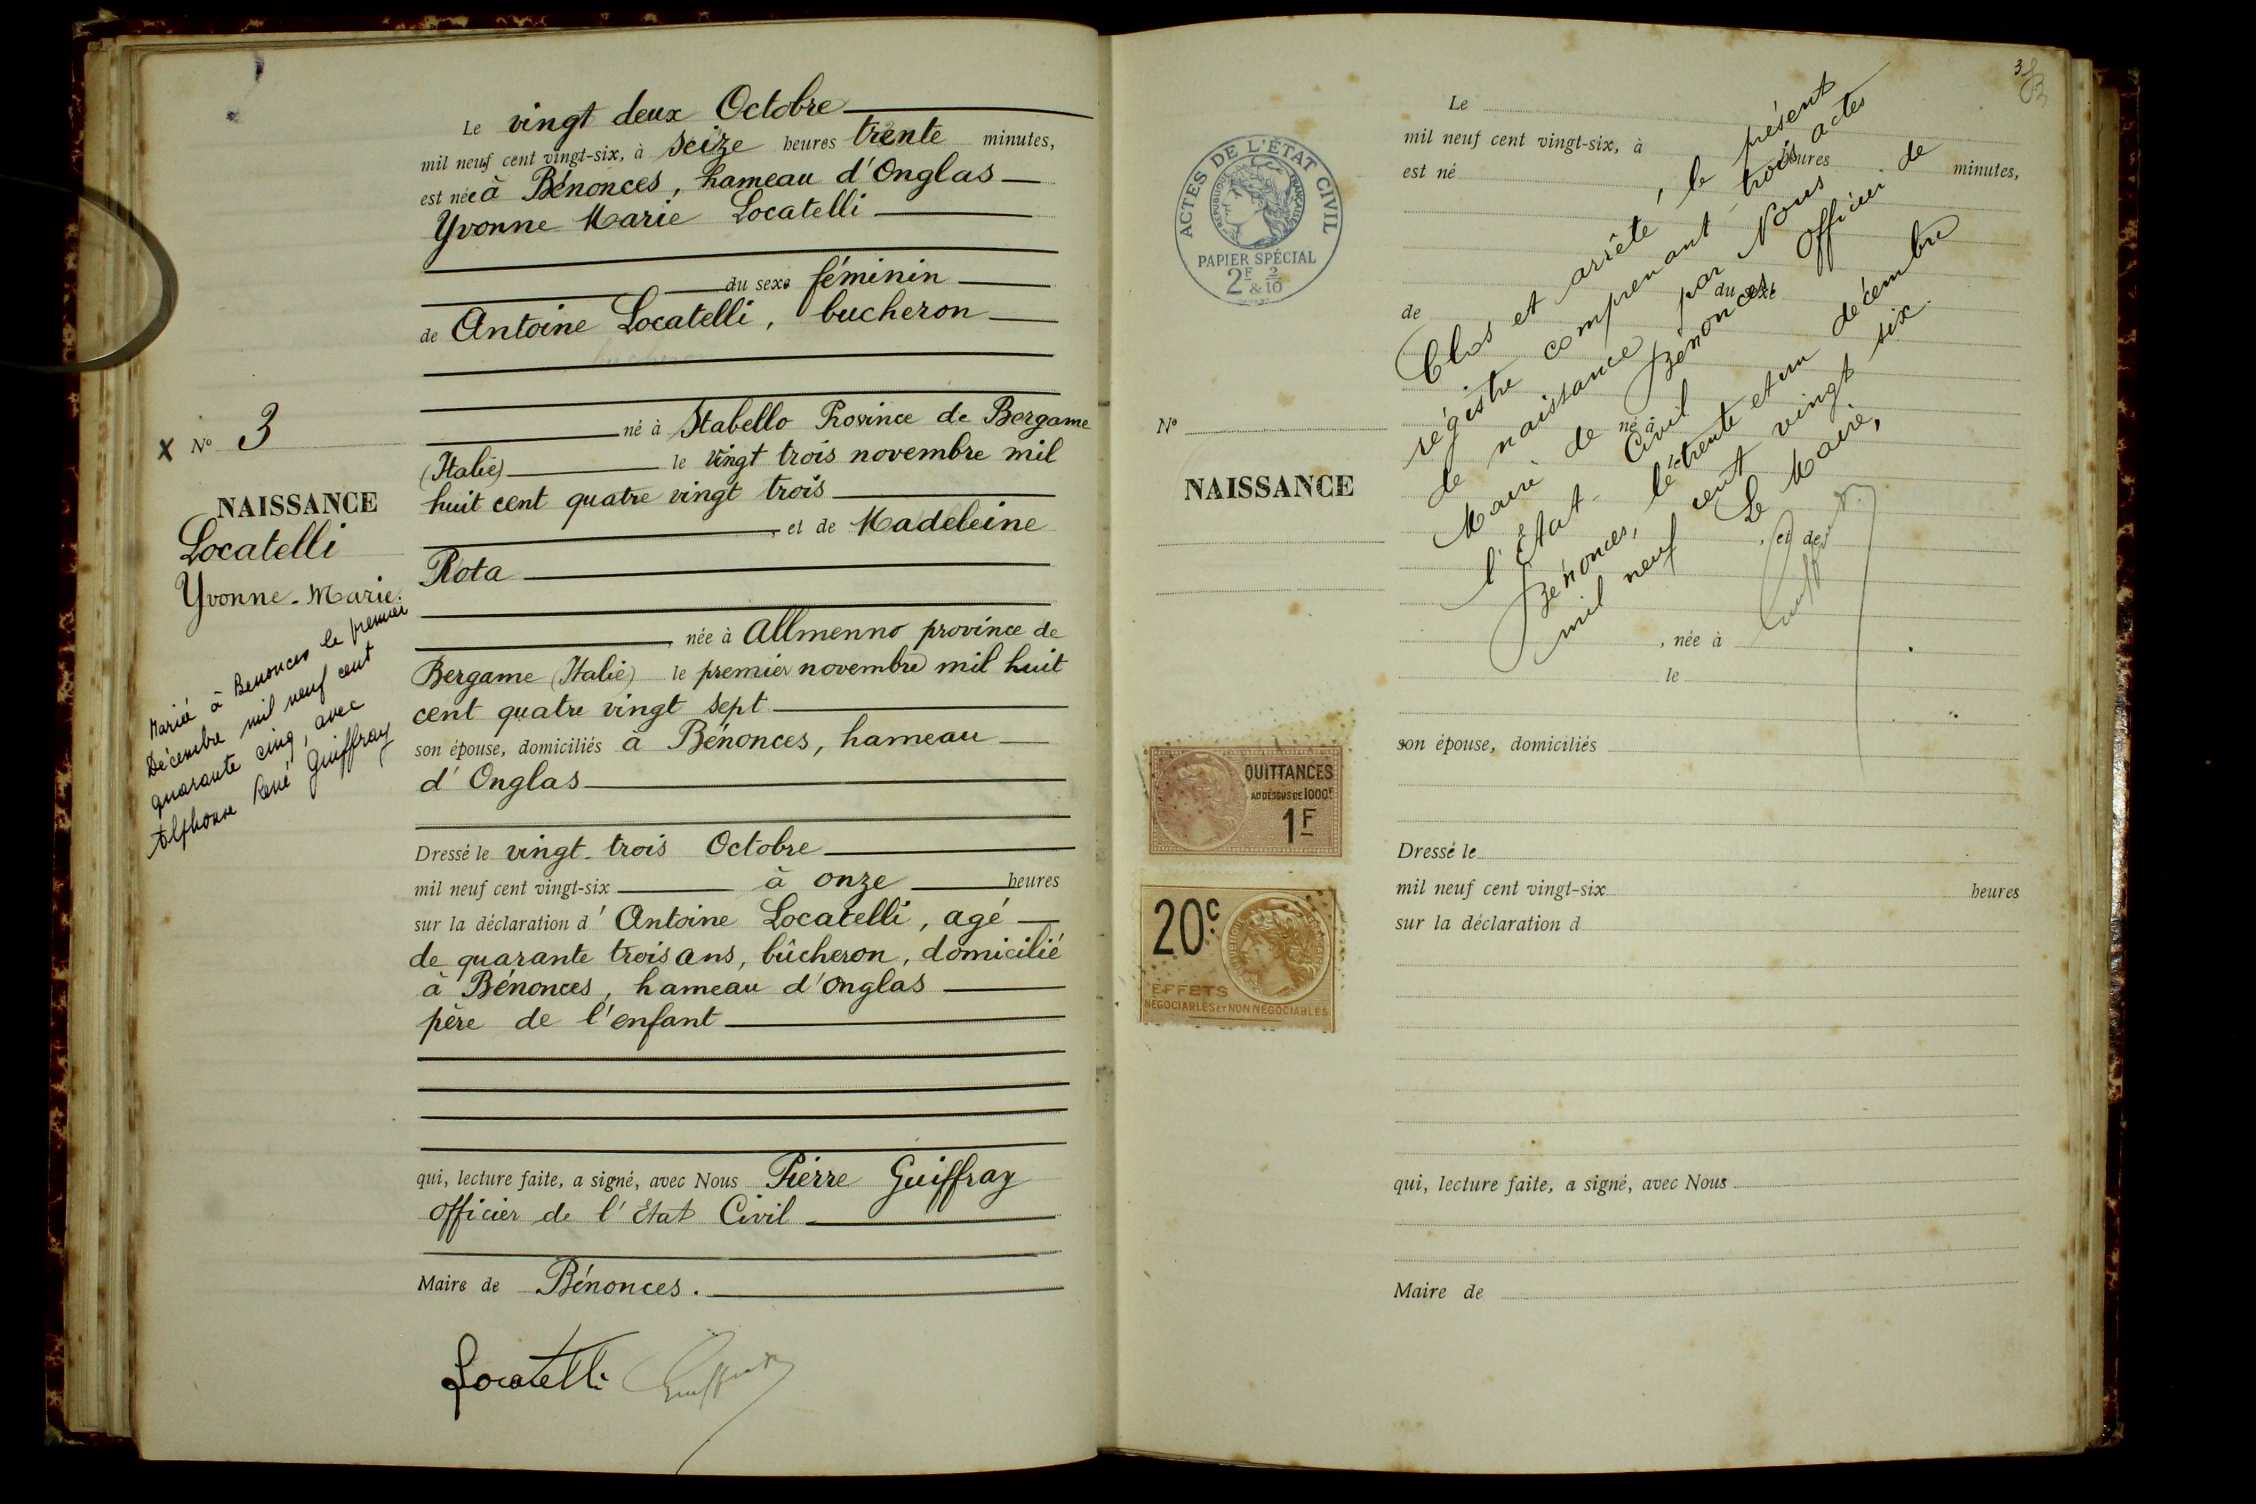 Le vingt deux Octobre
mil neuf cent vingt-six, à seize heures trente minutes,
est née à Bénonces, hameau d'Onglas
Yvonne Marie Locatelli
du sexe féminin
de Antoine Locatelli, bucheron
né à Stabello Province de Bergame
(Italie) le vingt trois novembre mil
huit cent quatre vingt trois
, et de Madeleine
Rota
, née à Allmenno province de
Bergame (Italie) le premier novembre mil huit
cent quatre vingt sept
son épouse, domiciliés à Bénonces, hameau
d'Onglas
Dressé le vingt-trois Octobre
mil neuf cent vingt-six à onze heures
sur la déclaration d'Antoine Locatelli, agé
de quarante trois ans, bûcheron, domicilié
à Bénonces, hameau d'Onglas
père de l'enfant
qui, lecture faite, a signé, avec Nous Pierre Guiffray
officier de l'Etat Civil
Maire de Bénonces.
Locatelli
X N° 3
NAISSANCE
Locatelli
Yvonne-Marie.
Marié à Benonces le premier
Décembre mil neuf cent
quarante cinq, avec
Alphonse René Guiffray
3
ACTES DE L'ÉTAT CIVIL
RÉPUBLIQUE FRANÇAISE
PAPIER SPÉCIAL
2F & 2/10
N°
NAISSANCE
QUITTANCES
AU DESSUS DE 1000F
1F
20c
EFFETS
NÉGOCIABLES ET NON NÉGOCIABLES
Le
mil neuf cent vingt-six, à heures minutes,
est né
du sexe
de
né à
le
, et de
, née à
le
son épouse, domiciliés
Dressé le
mil neuf cent vingt-six heures
sur la déclaration d
qui, lecture faite, a signé, avec Nous
Maire de
Clos et arrêté, le présent
régistre comprenant trois actes
de naissance par Nous
Maire de Bénonces, Officier de
l'Etat-Civil
Bénonces, le trente et un décembre
mil neuf cent vingt six.
Le Maire,